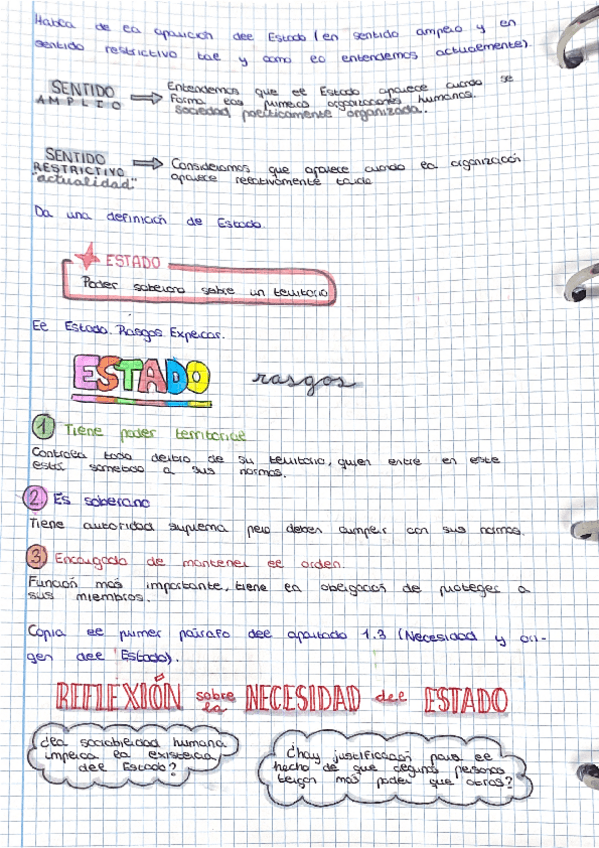 Habla de la aparición del Estado (en sentido amplio y en
sentido restrictivo tal y como lo entendemos actualmente).
SENTIDO
AMPLIO
Entendemos que el Estado aparece cuando se
forma las primeras organizaciones humanas.
sociedad políticamente organizada.
SENTIDO
RESTRICTIVO
"actualidad"
Consideramos que aparece cuando la organización
aparece relativamente tardía
Da una definición de Estado.
ESTADO
Poder soberano sobre un territorio
El Estado. Rasgos Explicar.
ESTADO rasgos
1 Tiene poder territorial
Controla todo dentro de su territorio, quien entre en este
está sometido a sus normas.
2 Es soberano
Tiene autoridad suprema pero deben cumplir con sus normas.
3 Encargado de mantener el orden.
Función más importante, tiene la obligación de proteger a
sus miembros.
Copia el primer párrafo del apartado 1.3 (Necesidad y ori-
gen del Estado).
REFLEXIÓN sobre la NECESIDAD del ESTADO
¿La sociabilidad humana
implica la existencia
del Estado?
¿hay justificación para el
hecho de que algunas personas
tengan más poder que otras?